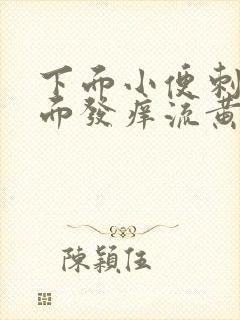 下而小便刺
而發痒流黄
陳穎伍